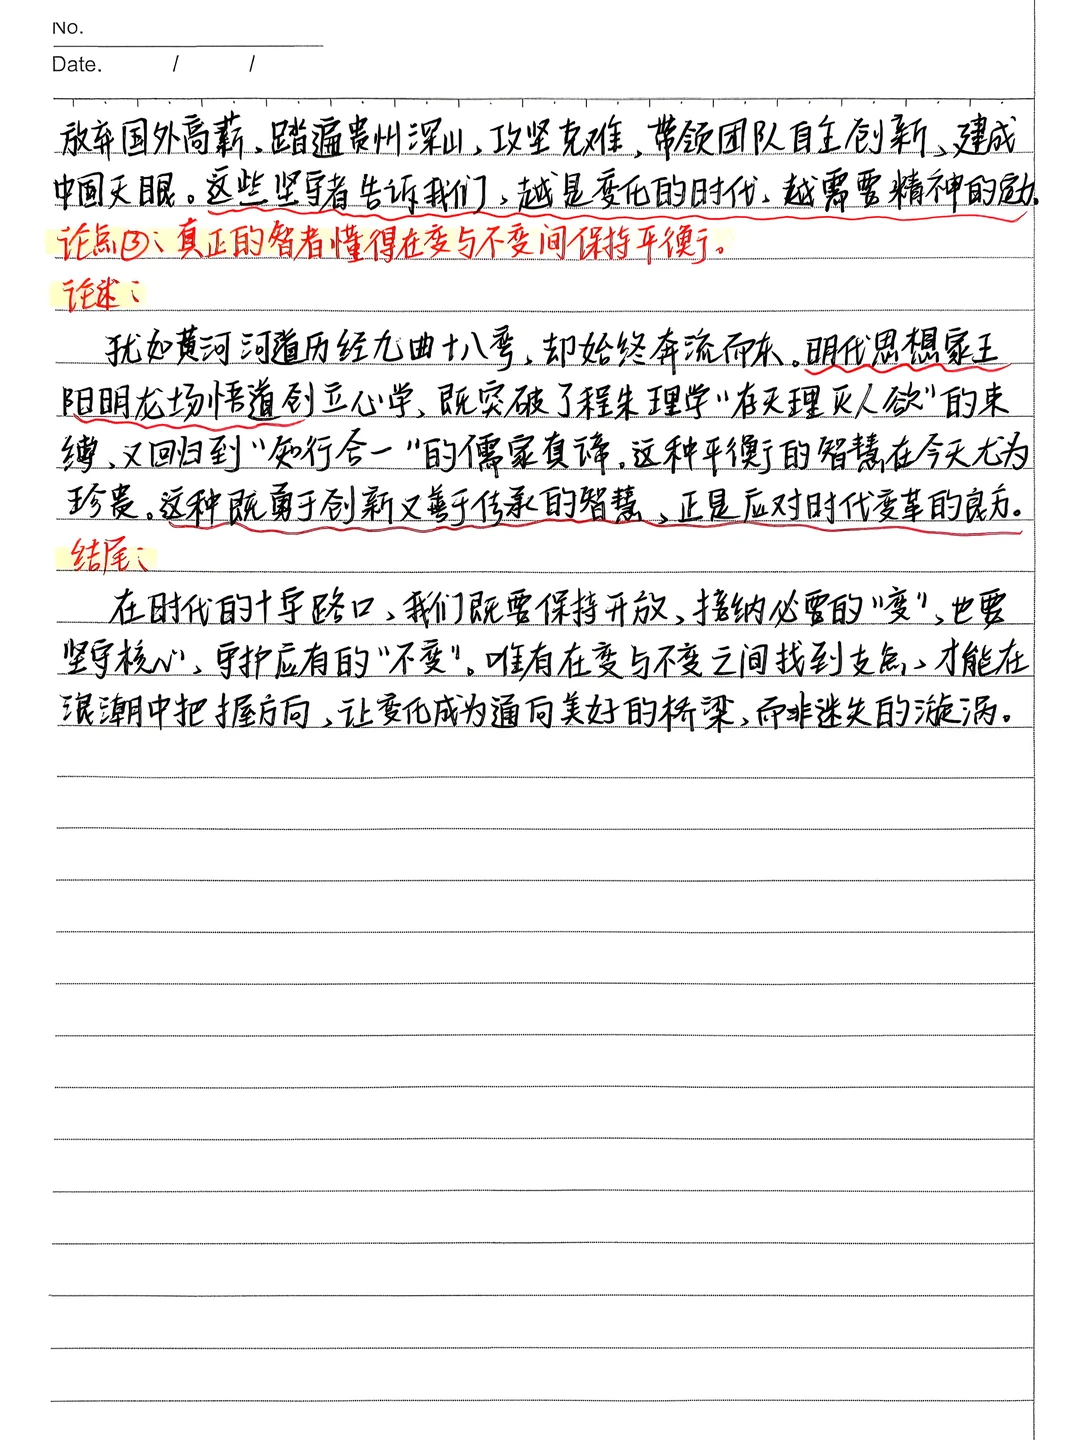 No.
Date. / /
放弃国外高薪,踏遍贵州深山,攻坚克难,带领团队自主创新、建成
中国天眼。这些坚守者告诉我们,越是变化的时代,越需要精神的定力。
论点③:真正的智者懂得在变与不变间保持平衡。
论述:
犹如黄河河道历经九曲十八弯,却始终奔流而东。明代思想家王
阳明龙场悟道创立心学,既突破了程朱理学“存天理灭人欲”的束
缚,又回归到“知行合一”的儒家真谛。这种平衡的智慧在今天尤为
珍贵。这种既勇于创新又善于传承的智慧,正是应对时代变革的良方。
结尾:
在时代的十字路口,我们既要保持开放,接纳必要的“变”,也要
坚守核心,守护应有的“不变”。唯有在变与不变之间找到支点,才能在
浪潮中把握方向,让变化成为通向美好的桥梁,而非迷失的漩涡。